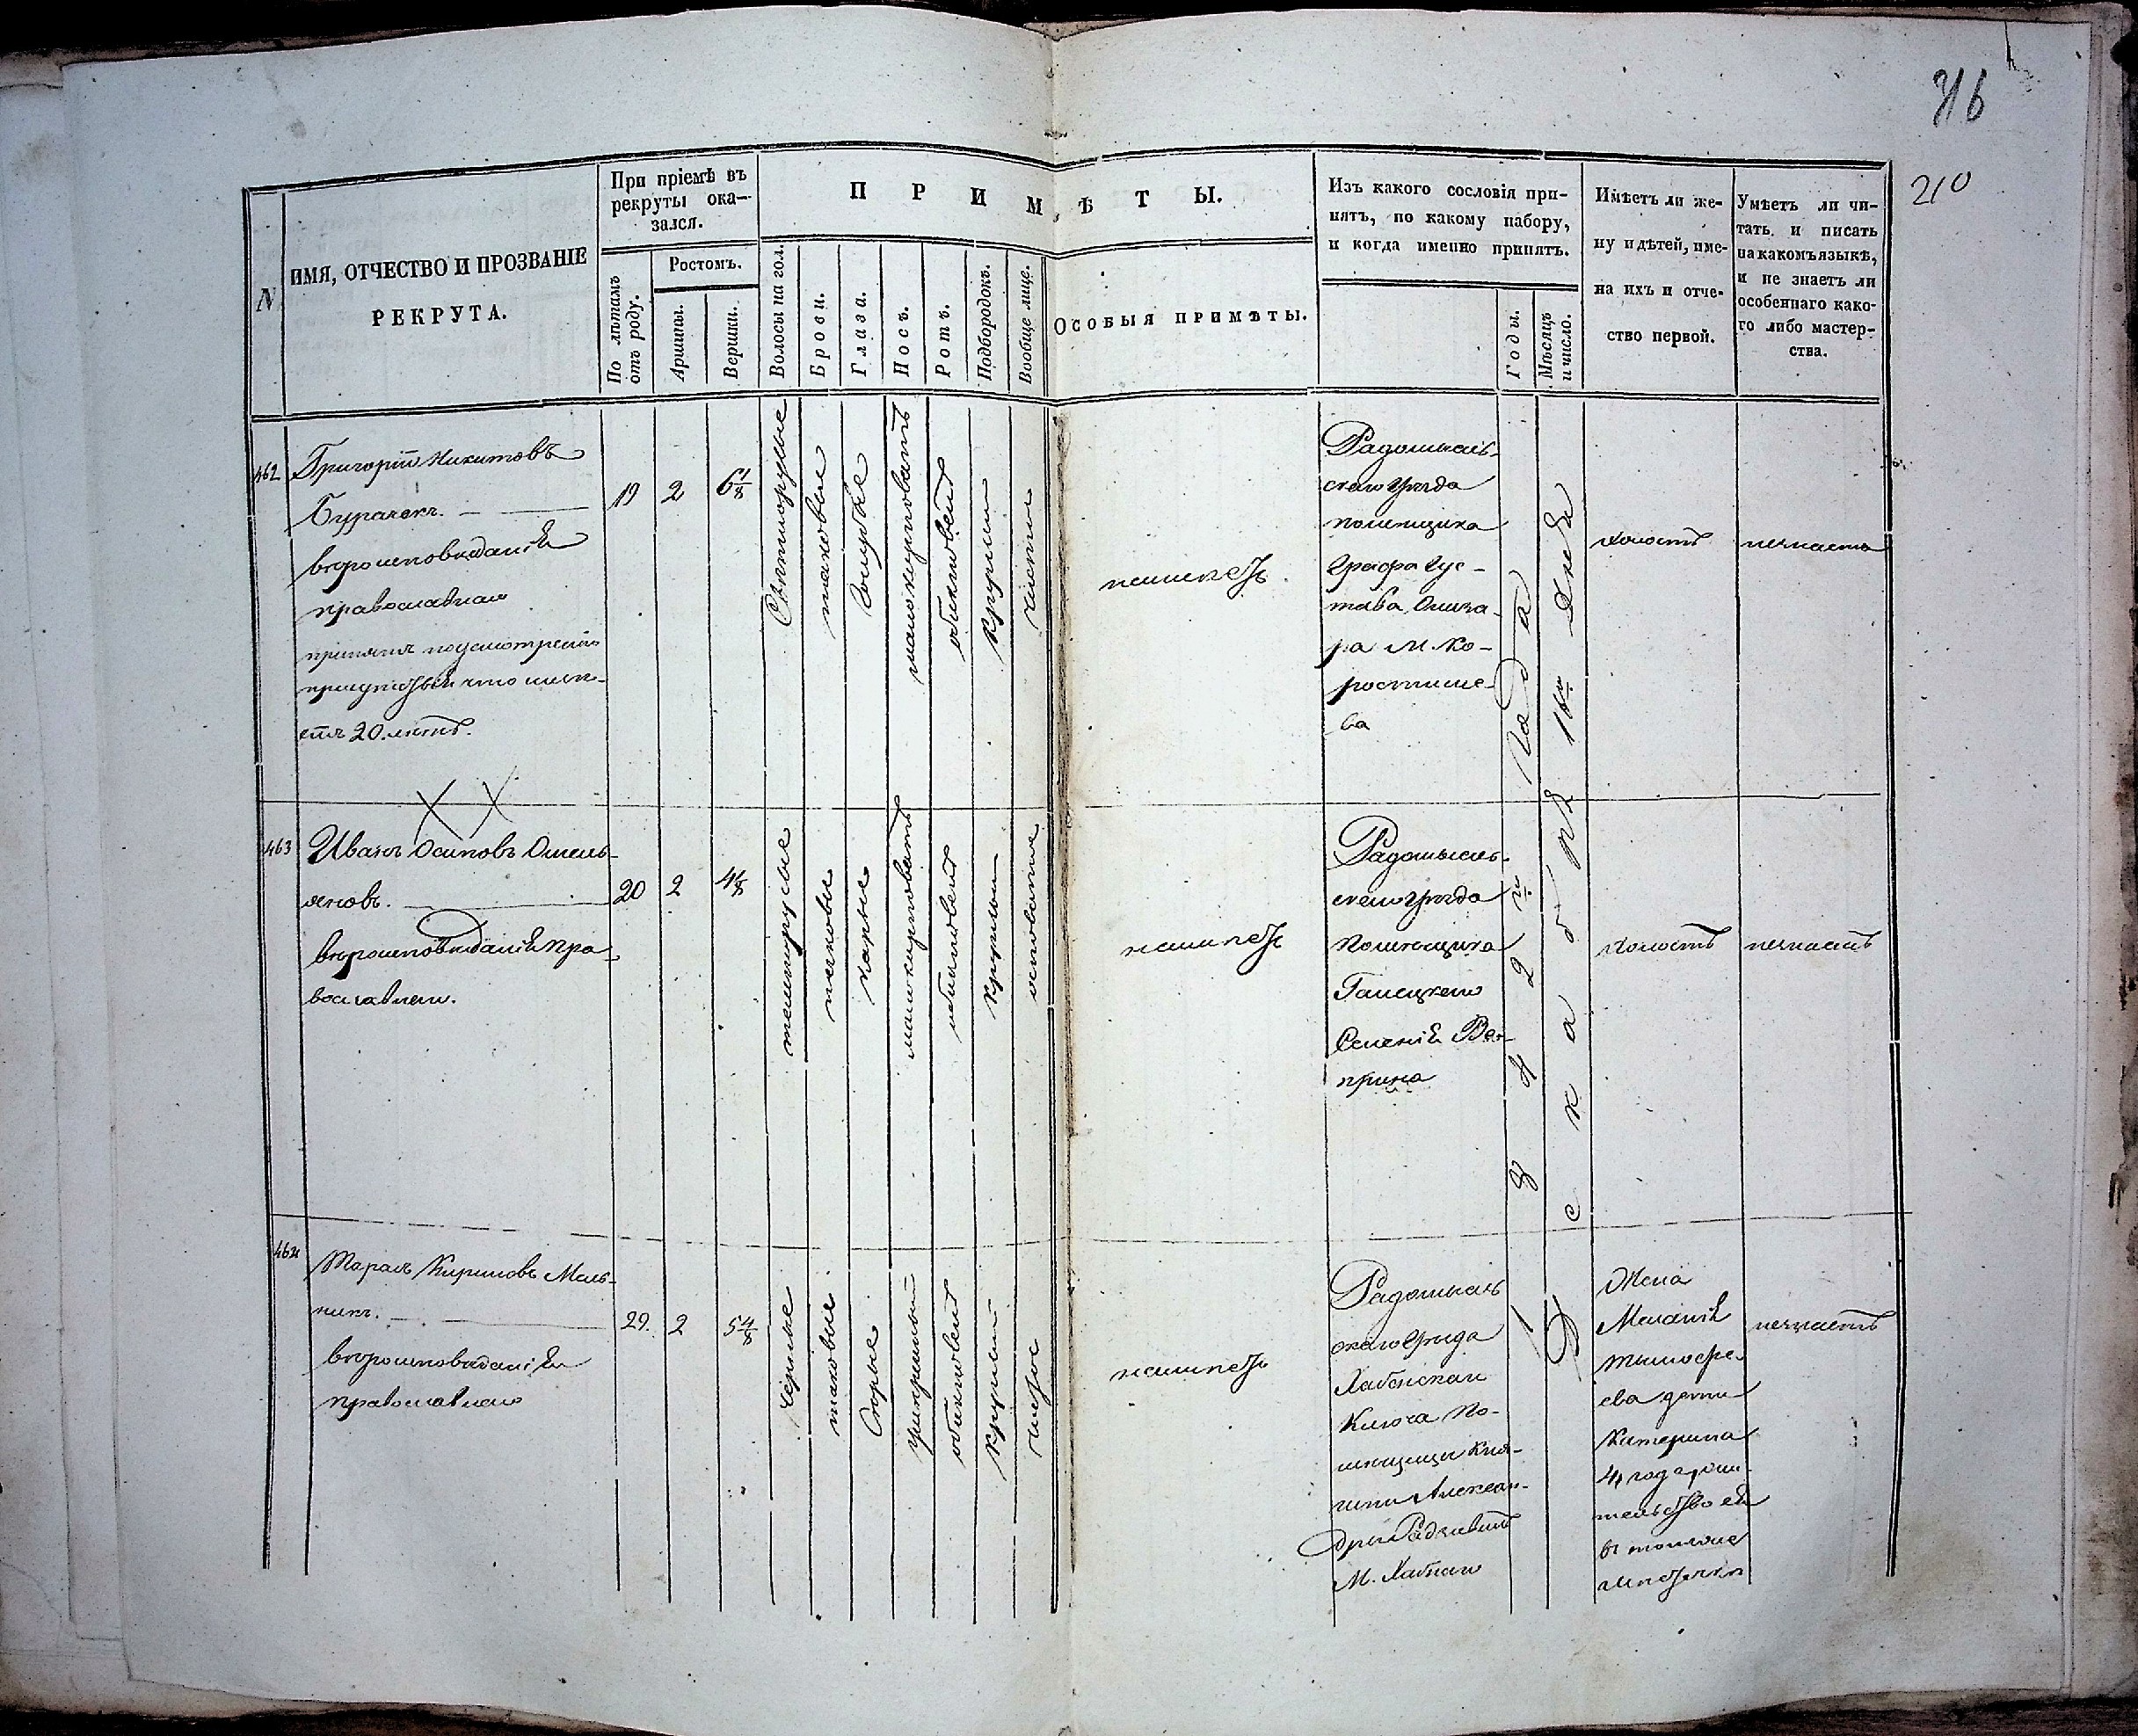 716
210
N
ИМЯ, ОТЧЕСТВО И ПРОЗВАНІЕ
РЕКРУТА.
При пріемѣ въ
рекруты ока-
зался.
По лѣтамъ
отъ роду.
Ростомъ.
Аршины.
Вершки.
П Р И М Ѣ Т Ы.
Волосы на гол.
Брови.
Глаза.
Носъ.
Ротъ.
Подбородокъ.
Вообще лице.
ОСОБЫЯ ПРИМѢТЫ.
Изъ какого сословія при-
нятъ, по какому набору,
и когда именно принятъ.
Годы.
Мѣсяцъ
и число.
Имѣетъ ли же-
ну и дѣтей, име-
на ихъ и отче-
ство первой.
Умѣетъ ли чи-
тать и писать
на какомъ языкѣ,
и не знаетъ ли
особеннаго како-
го либо мастер-
ства.
462
Григорій Никитовъ
Бурачекъ.
вѣроисповѣданія
православнаго
принятъ по усмотренію
присутствія что имѣ-
етъ 20 лѣтъ.
19
2
6 1/8
Свѣтлорусые
таковые
голубые
малокурноватъ
обикновенъ
круглый
чистое
неимѣетъ
Радомысль-
скаго уѣзда
помѣщика
Графа Гус-
тава Олиза-
ра м. Ко-
ростыше-
ва
холостъ
неумѣетъ
463
Иванъ Осиповъ Омель-
яновъ.
вѣроисповѣданія пра-
вославнаго.
20
2
темнорусые
таковые
карие
малокурноватъ
обыкновенъ
круглый
неимѣетъ
Радомысль-
скаго уѣзда
помѣщика
Галецкаго
Селенія Ве-
прина
холостъ
неумѣетъ
464
Тарасъ Кириловъ Мель-
никъ.
вѣроисповѣданія
православнаго
29.
2
5 4/8
черные
таковые
Сѣрые
умѣренный
обикновенъ
круглый
чистое
неимѣетъ
Радомысль
скаго уѣзда
Хабенскаго
Ключа По-
мѣщицы Кня-
гини Алексан-
дры Радзивилъ
М. Хабнаго
Жена
Меланія
Тимофе-
ева дети
Катерина
4 года, жи-
тельство ея
въ томъ же
мѣстечкѣ
неумѣетъ
1842 го Года
Декабря 16 го Дня